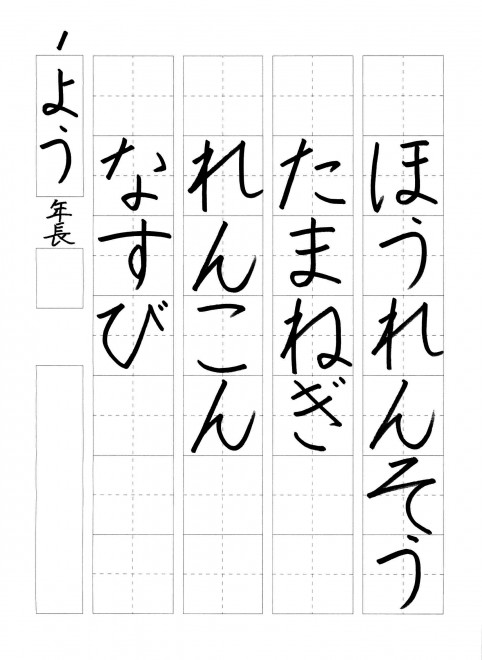 ほうれんそう
たまねぎ
れんこん
なすび
よう
年長